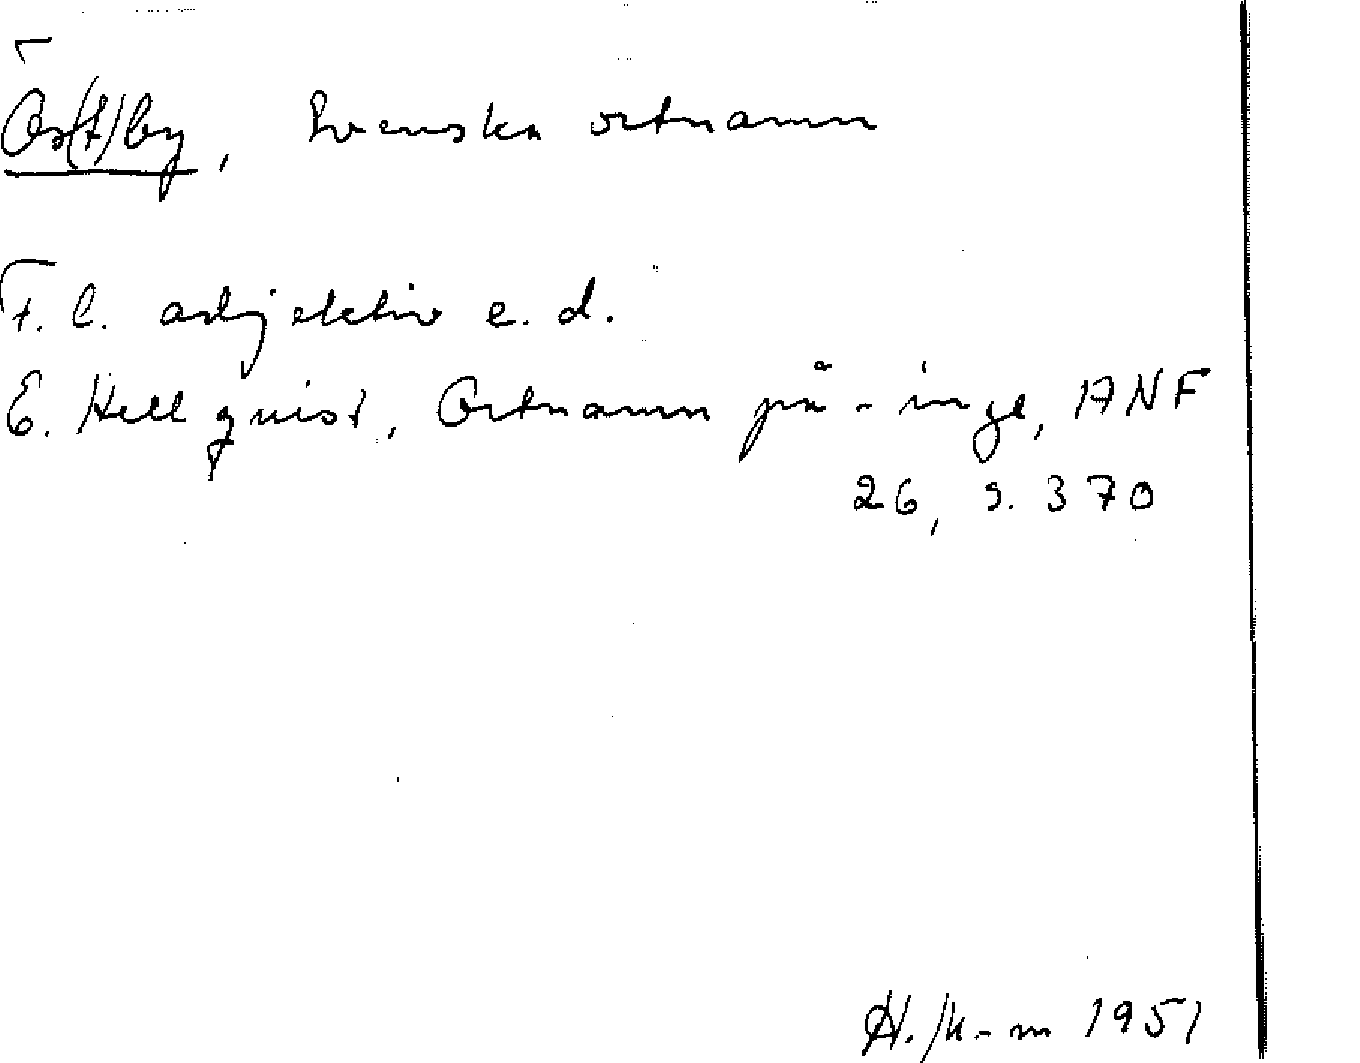 Ös(t)by, Svenska ortnamn
F. l. adjektiv e. d.
E. Hellquist, Ortnamn på -inge, ANF
26, s. 370
1951